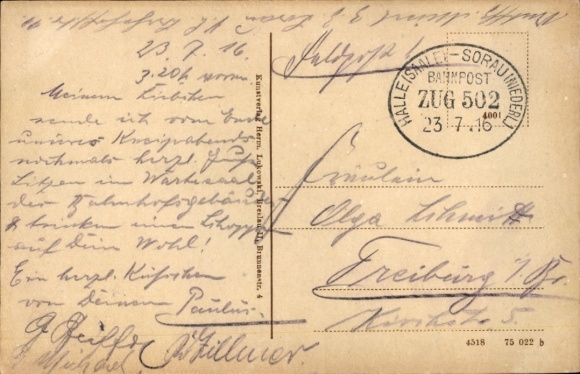 23.7.16
3.20h vorm.
Meinem Liebchen
sende ich vom Ende
unseres Kneipabends
nochmals herzl. Gruß.
Sitzen im Wartesaal
des Bahnhofsgebäudes
& trinken einen Schoppen
auf Dein Wohl!
Ein herzl. Küsschen
von Deinem Paulus.
G. Pfeiffer
Michael
Zillmer.
Kunstverlag Herm. Lukowski, Breslau II, Brunnenstr. 4
Feldpost
HALLE (SAALE) - SORAU (NIEDERL)
BAHNPOST
ZUG 502
4001
23 7.16
Fräulein
Olga Schmitt
Freiburg i/Br.
Kirchstr. 5.
4518 75 022 b